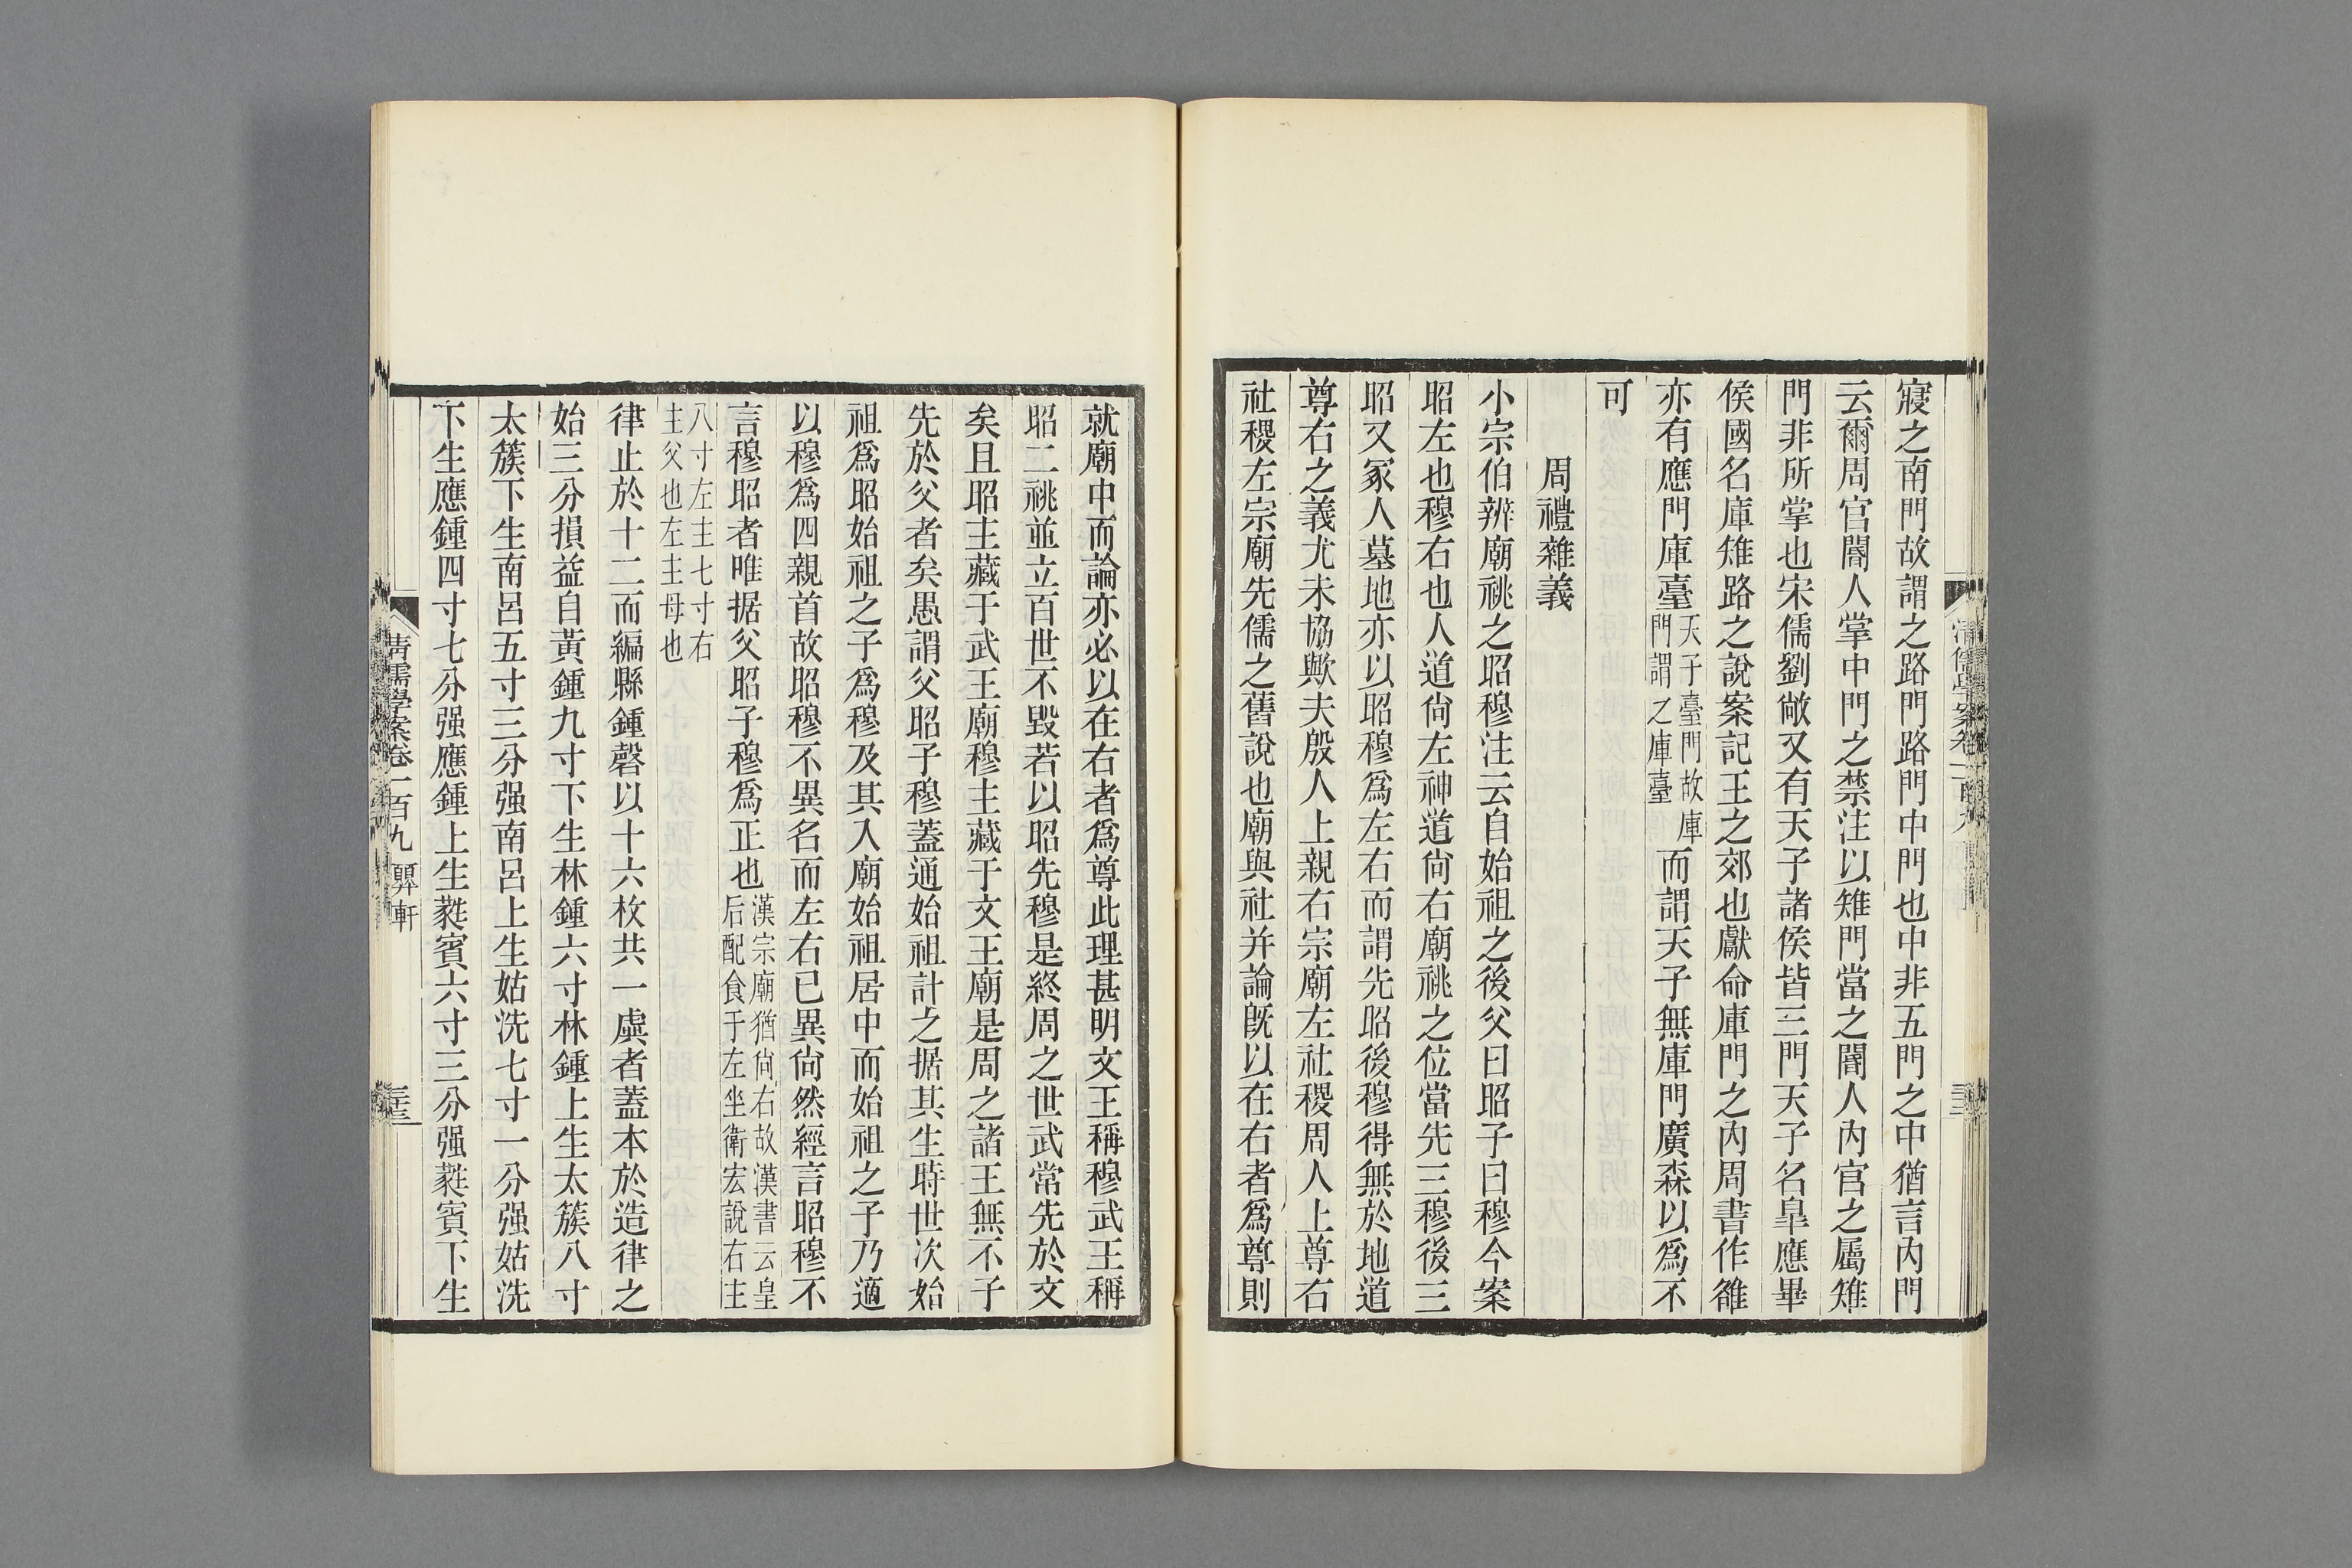 寢之南門故謂之路門路門中門也中非五門之中猶言內門
云爾周官閽人掌中門之禁注以雉門當之閽人內官之屬雉
門非所掌也宋儒劉敞又有天子諸侯皆三門天子名臯應畢
侯國名庫雉路之說案記王之郊也獻命庫門之內周書作雒
亦有應門庫臺天子臺門故庫門謂之庫臺而謂天子無庫門廣森以爲不
可
周禮雜義
小宗伯辨廟祧之昭穆注云自始祖之後父曰昭子曰穆今案
昭左也穆右也人道尙左神道尙右廟祧之位當先三穆後三
昭又冢人墓地亦以昭穆爲左右而謂先昭後穆得無於地道
尊右之義尤未協歟夫殷人上親右宗廟左社稷周人上尊右
社稷左宗廟先儒之舊說也廟與社并論旣以在右者爲尊則
就廟中而論亦必以在右者爲尊此理甚明文王稱穆武王稱
昭二祧並立百世不毀若以昭先穆是終周之世武常先於文
矣且昭主藏于武王廟穆主藏于文王廟是周之諸王無不子
先於父者矣愚謂父昭子穆蓋通始祖計之据其生時世次始
祖爲昭始祖之子爲穆及其入廟始祖居中而始祖之子乃適
以穆爲四親首故昭穆不異名而左右已異尙然經言昭穆不
言穆昭者唯据父昭子穆爲正也漢宗廟猶尙右故漢書云皇后配食于左坐衛宏說右主
八寸左主七寸右主父也左主母也
律止於十二而編縣鍾磬以十六枚共一虡者蓋本於造律之
始三分損益自黃鍾九寸下生林鍾六寸林鍾上生太簇八寸
太簇下生南呂五寸三分强南呂上生姑洗七寸一分强姑洗
下生應鍾四寸七分强應鍾上生蕤賓六寸三分强蕤賓下生
清儒學案卷一百九 顨軒
三十三